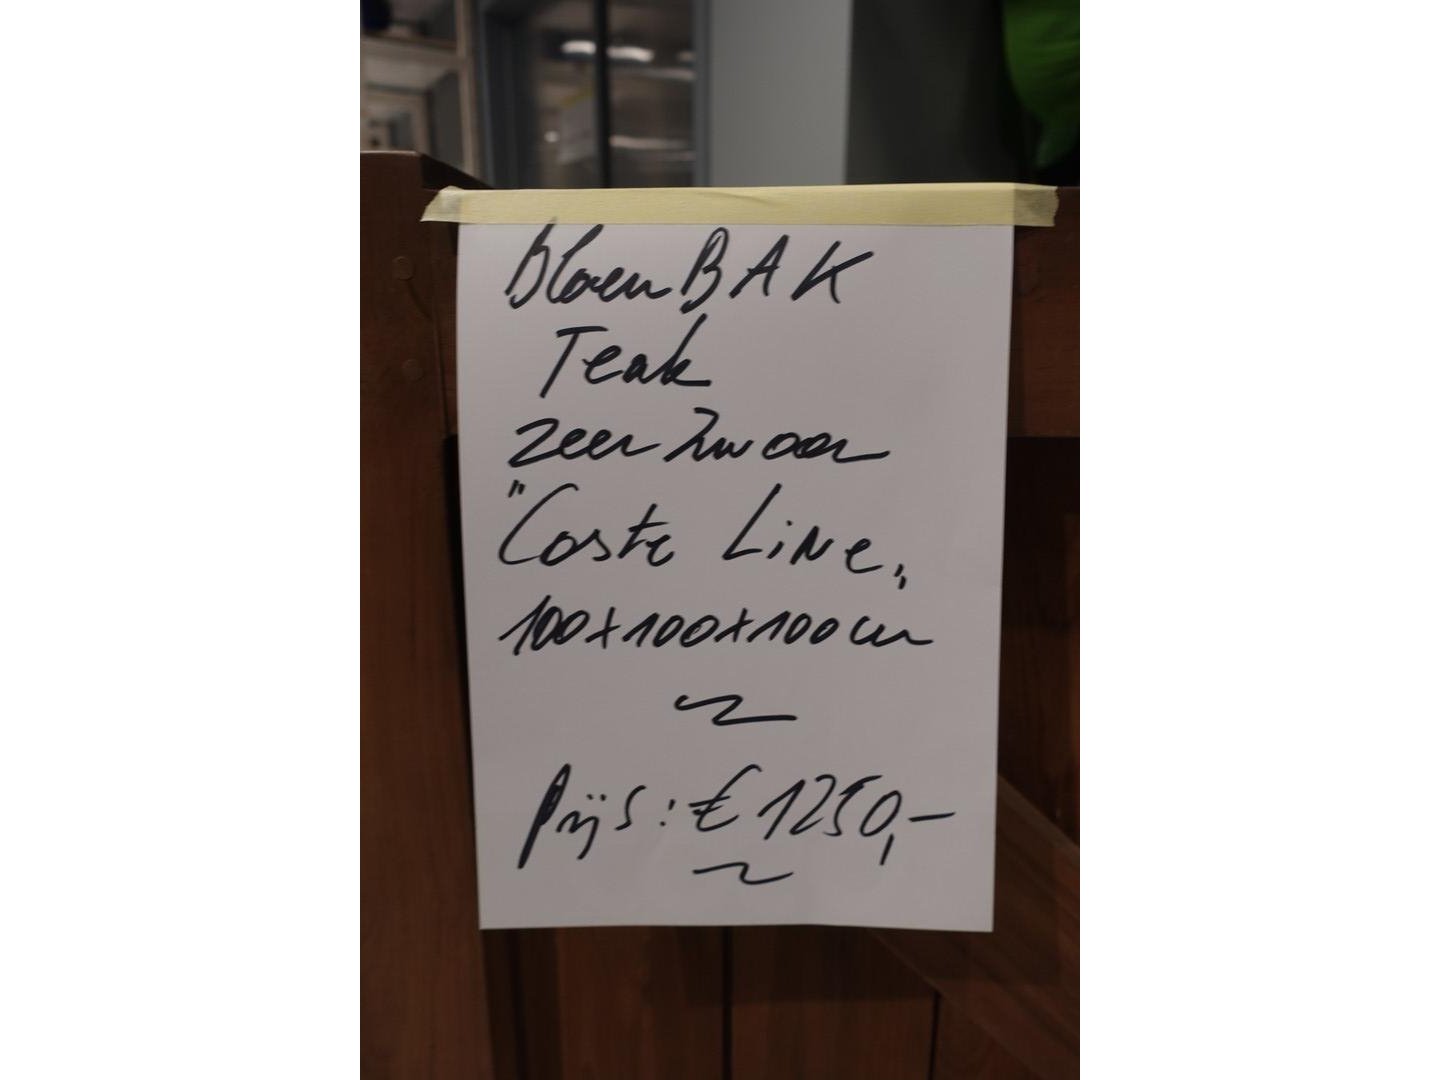 BloemBAK
Teak
zeer zwaar
"Coste Line„
100x100x100cm
prijs: € 1250,-